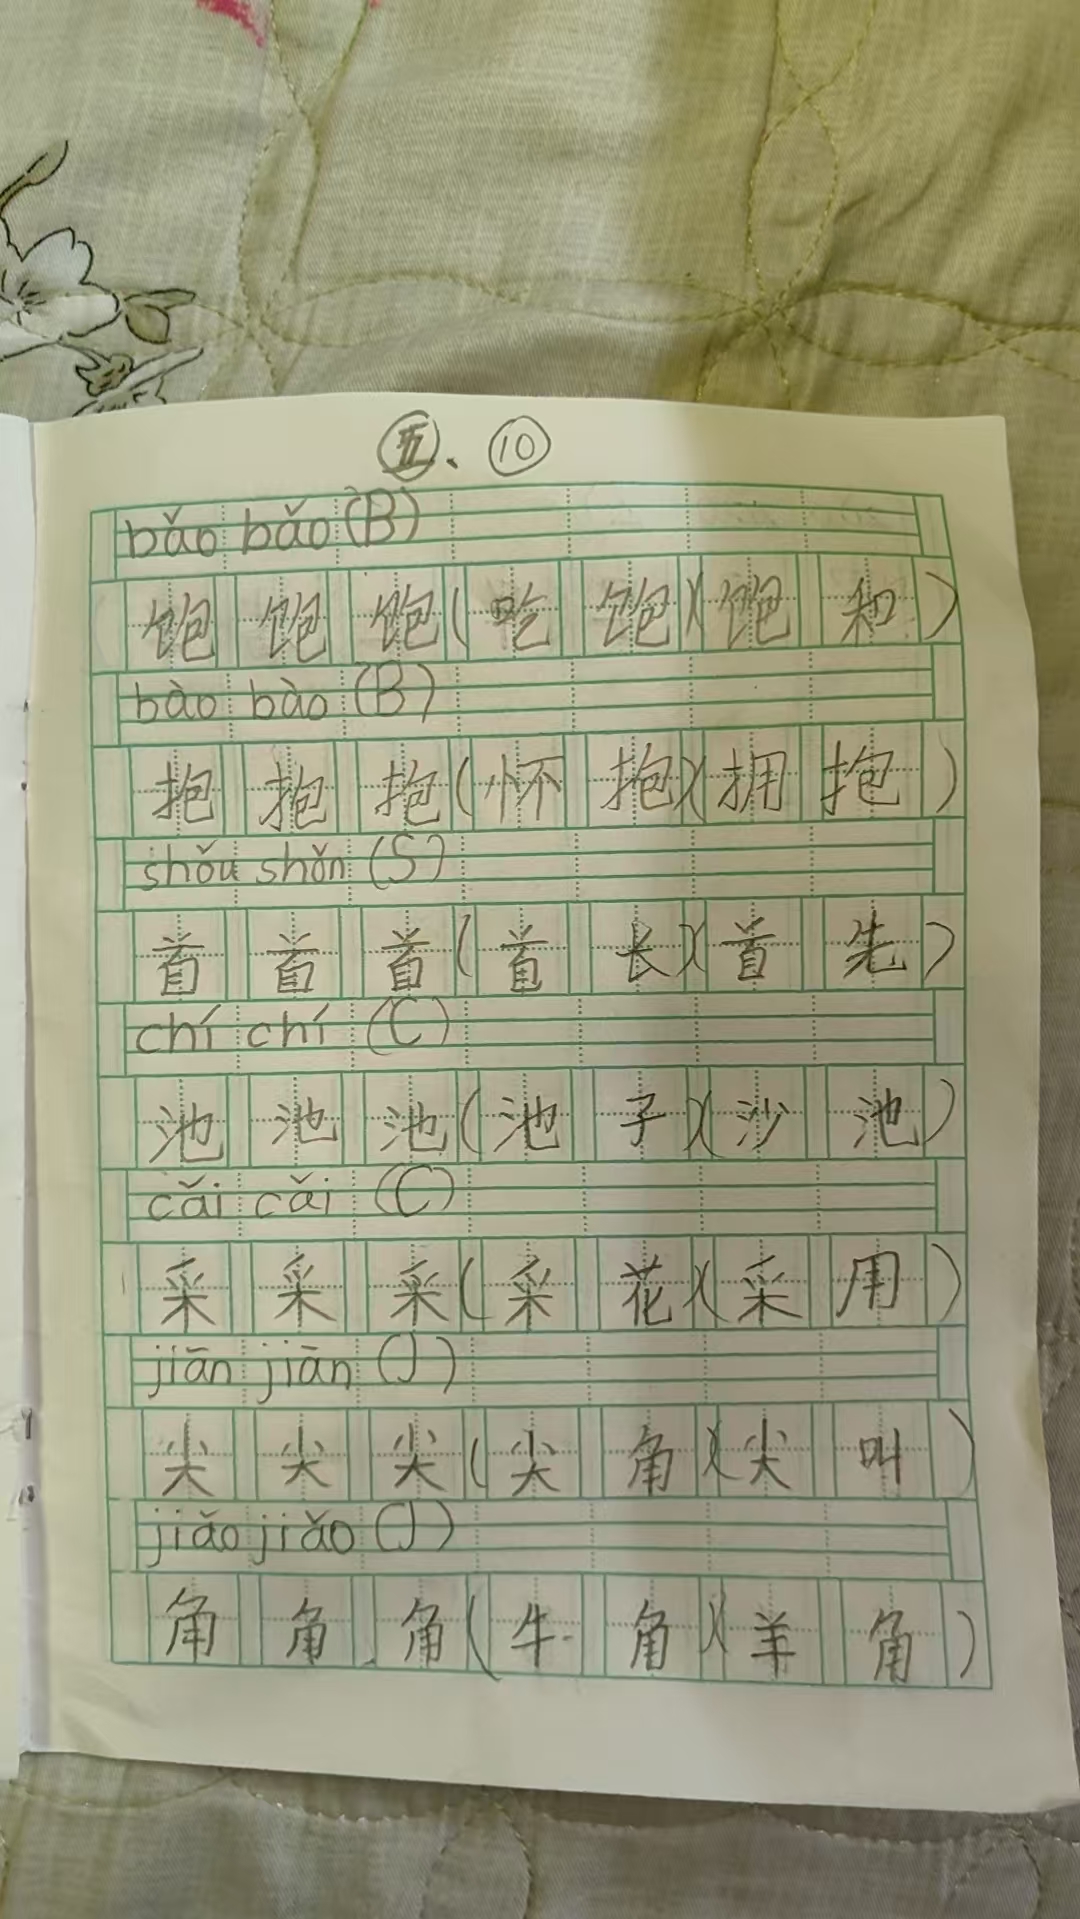 五、⑩
bǎo bǎo (B)
饱 饱 饱 (吃 饱)(饱 和)
bào bào (B)
抱 抱 抱 (怀 抱)(拥 抱)
shǒu shǒn (S)
首 首 首 (首 长)(首 先)
chí chí (C)
池 池 池 (池 子)(沙 池)
cǎi cǎi (C)
采 采 采 (采 花)(采 用)
jiān jiān (J)
尖 尖 尖 (尖 角)(尖 叫)
jiǎo jiǎo (J)
角 角 角 (牛 角)(羊 角)